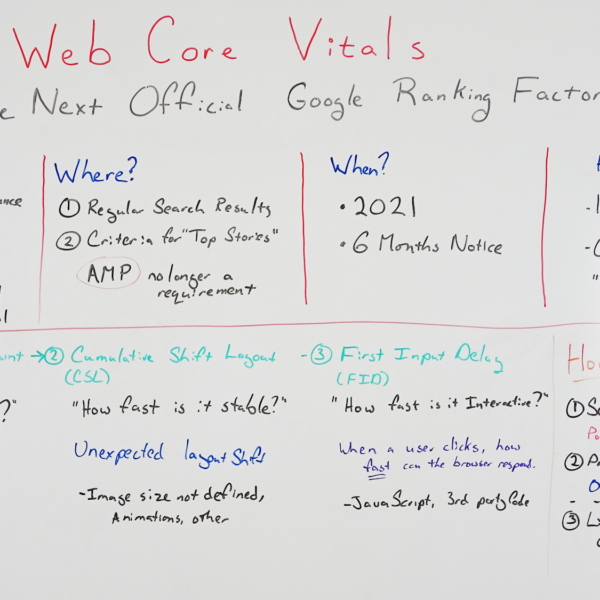 Web Core Vitals
Next Official Google Ranking Factor
Where?
① Regular Search Results
② Criteria for "Top Stories"
AMP no longer a
requirement
When?
• 2021
• 6 Months Notice
→② Cumulative Shift Layout
(CSL)
"How fast is it stable?"
Unexpected layout shift
-Image size not defined,
Animations, other
-③ First Input Delay
(FID)
"How fast is it Interactive?"
When a user clicks, how
fast can the browser respond.
-JavaScript, 3rd party Code
①
②
③